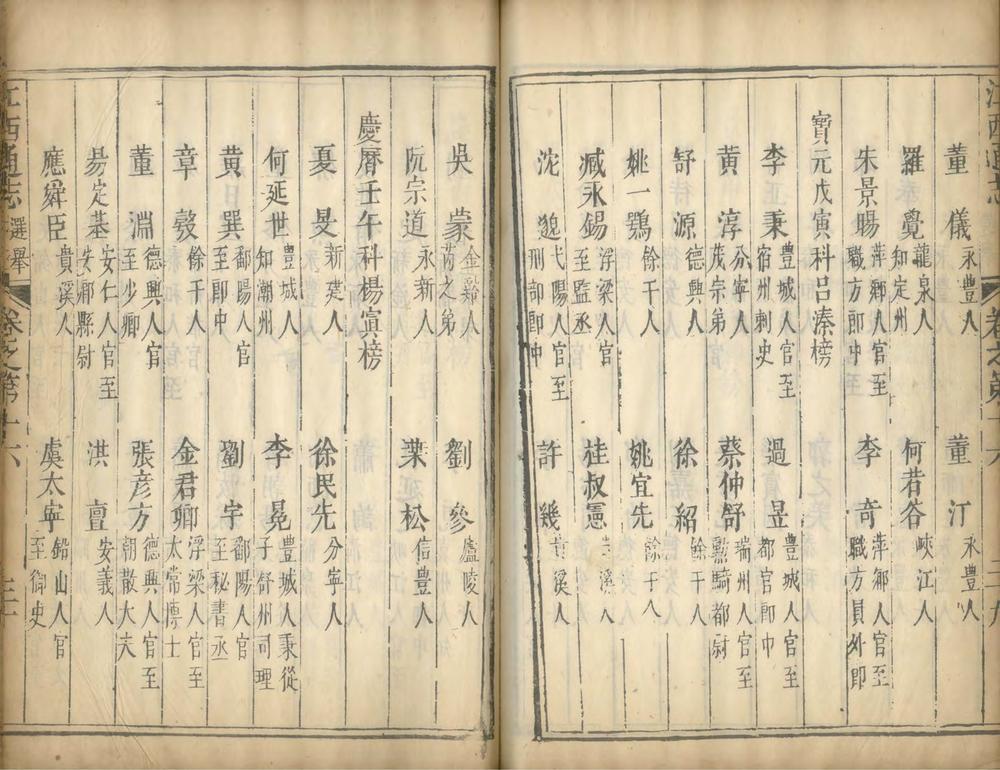 江西通志 卷之第十六
董儀 永豐人 董汀 永豐人
羅覺 龍泉人知定州 何若谷 峽江人
朱景暘 萍鄉人官至職方郎中 李奇 萍鄉人官至職方員外郎
寶元戊寅科呂溱榜
李秉 豐城人官至宿州刺史 過昱 豐城人官至都官郎中
黄淳 分寧人茂宗弟 蔡仲舒 瑞州人官至驍騎都尉
舒源 德興人 徐紹 餘干人
姚一鶚 餘干人 姚宜先 餘干人
臧永錫 浮梁人官至監丞 桂叔憲 貴溪人
沈邈 弋陽人官至刑部郎中 許幾 貴溪人
吳蒙 金谿人芮之弟 劉參 廬陵人
阮宗道 永新人 葉松 信豐人
慶曆壬午科楊寘榜
夏旻 新建人 徐民先 分寧人
何延世 豐城人知潮州 李冕 豐城人秉從子舒州司理
黄巽 鄱陽人官至郎中 劉宇 鄱陽人官至秘書丞
章𣪺 餘干人 金君卿 浮梁人官至太常博士
董淵 德興人官至少卿 張彦方 德興人官至朝散大夫
昜定基 安仁人官至安鄉縣尉 洪亶 安義人
應舜臣 貴溪人 虞太寧 鉛山人官至御史
江西通志 選舉 卷之第十六 三十